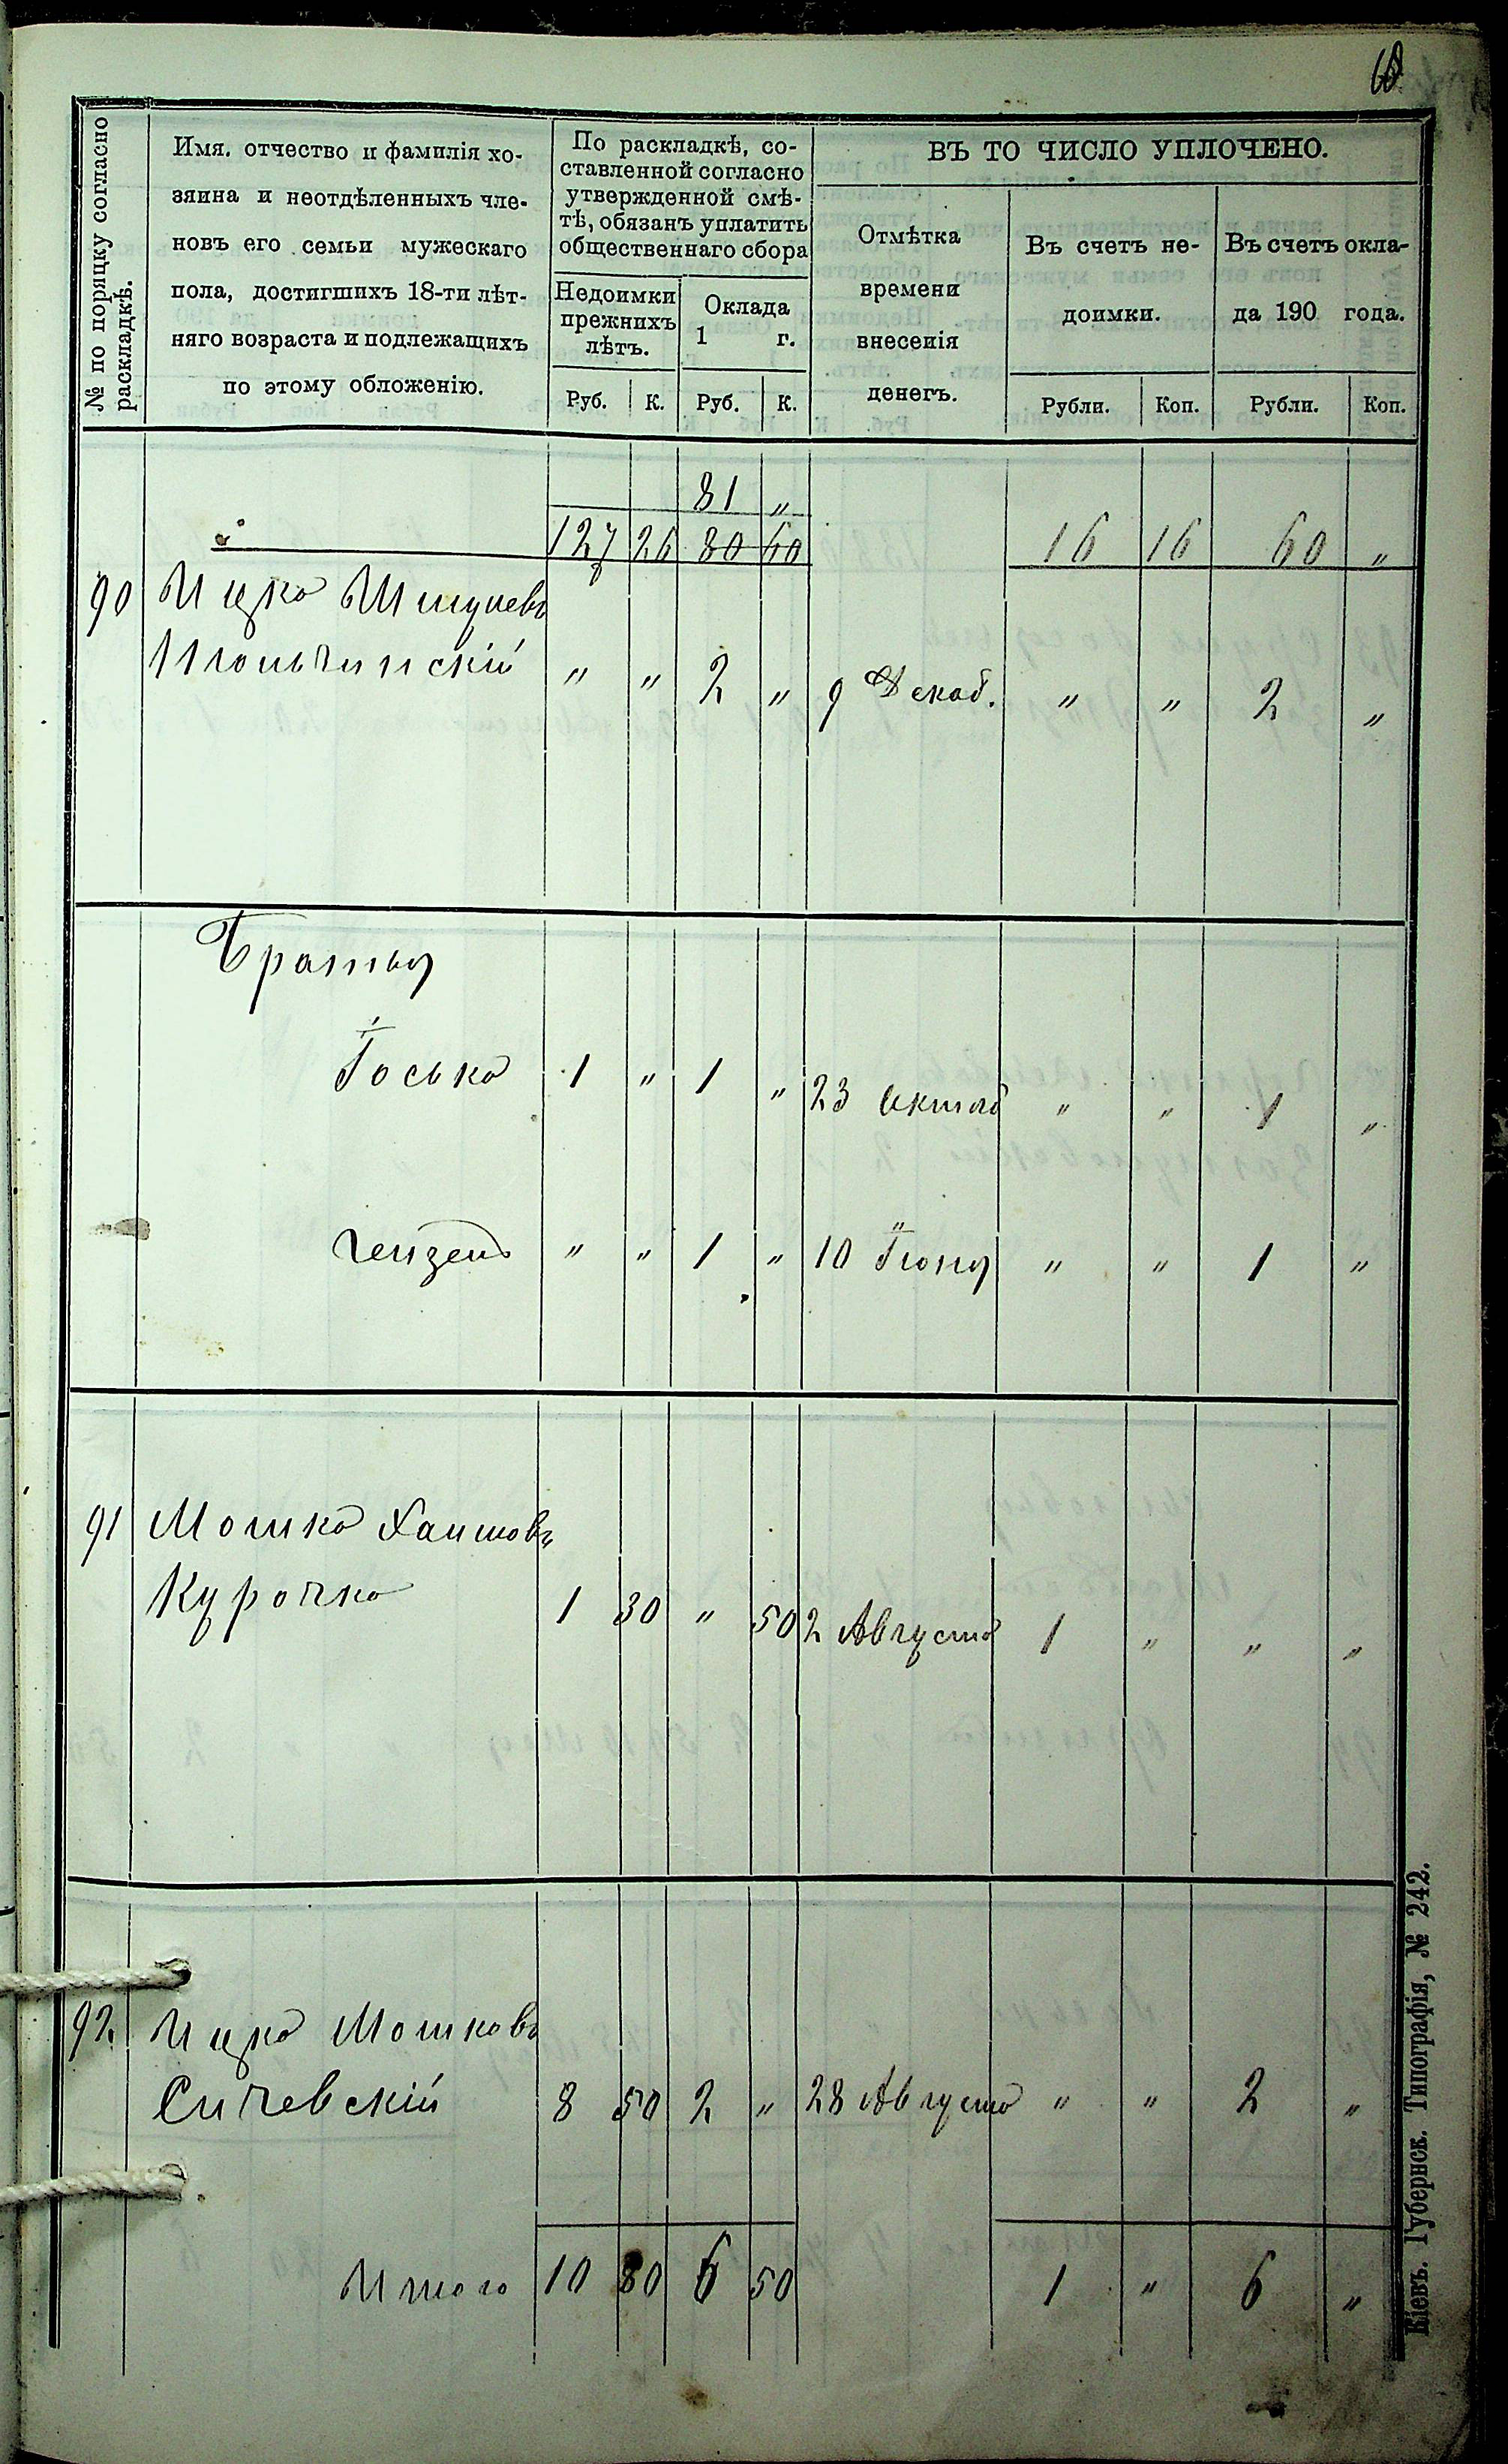 68
№ по порядку согласно раскладкѣ.
Имя. отчество и фамилія хо-
зяина и неотдѣленныхъ чле-
новъ его семьи мужескаго
пола, достигшихъ 18-ти лѣт-
няго возраста и подлежащихъ
по этому обложенію.
По раскладкѣ, со-
ставленной согласно
утвержденной смѣ-
тѣ, обязанъ уплатить
общественнаго сбора
Недоимки
прежнихъ
лѣтъ.
Оклада
1 г.
Руб. К. Руб. К.
ВЪ ТО ЧИСЛО УПЛОЧЕНО.
Отмѣтка
времени
внесенія
денегъ.
Въ счетъ не-
доимки.
Въ счетъ окла-
да 190 года.
Рубли. Коп. Рубли. Коп.
81 "
127 26 80 60 16 16 60 "
90 Ицко
" " 2 " 9 Декаб. " " 2 "
Братья
Іосько 1 " 1 " 23 Октяб " " 1 "
" " 1 " 10 Іюня " " 1 "
91 Мошко Хаимовъ
Курочка 1 30 " 50 2 Августа 1 " " "
92. Ицко Мошковъ
Сичевскій 8 50 2 " 28 Августа " " 2 "
Итого 10 80 6 50 1 " 6 "
Кіевъ. Губернск. Типографія, № 242.